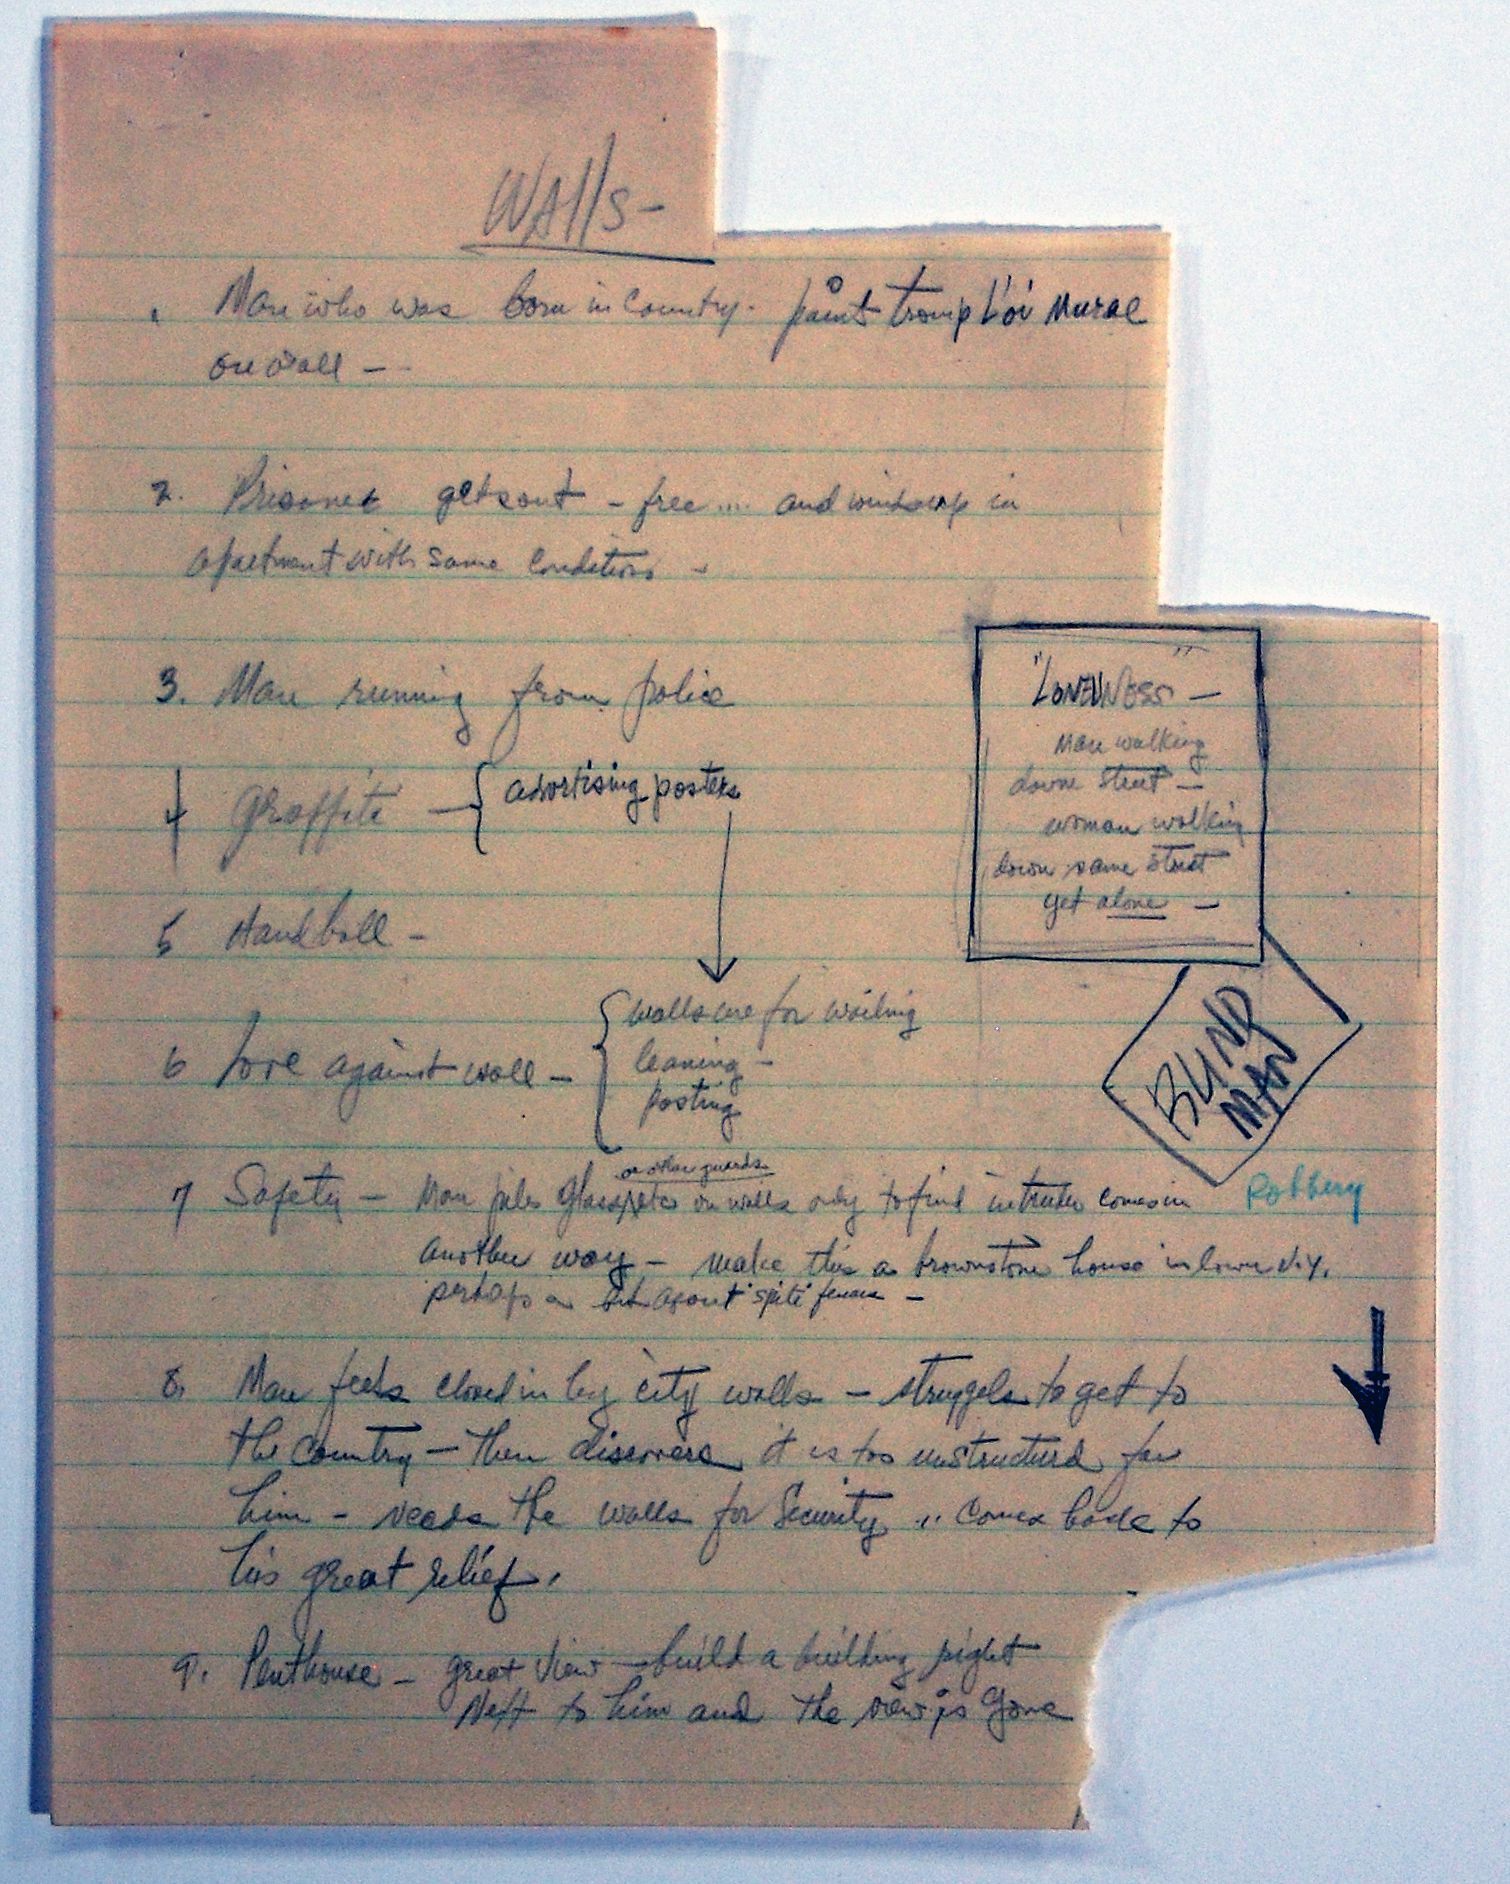 WAllS -
1 Man who was born in Country - paint tromp L'oi Mural
on wall - -
2. Prisoner gets out - free .... and winds up in
apartment with same conditions -
3. Man running from police
4 Graffiti - { advertising posters
"LONELINESS" -
man walking
down street -
woman walking
down same street
yet alone -
5 Handball -
6 Love against wall - { walls are for wailing
leaning -
posting
BLIND
MAN
or other guards
7 Safety - Man piles glass, etc on walls only to find intruder comes in Robbery
another way - make this a brownstone house in lower N.Y.
perhaps a bit about "spite" fences -
8. Man feels closed in by city walls - struggels to get to
the country - then discovers it is too unstructured for
him - needs the walls for Security .. comes back to
his great relief.
9. Penthouse - great view - build a building right
Next to him and the view is gone